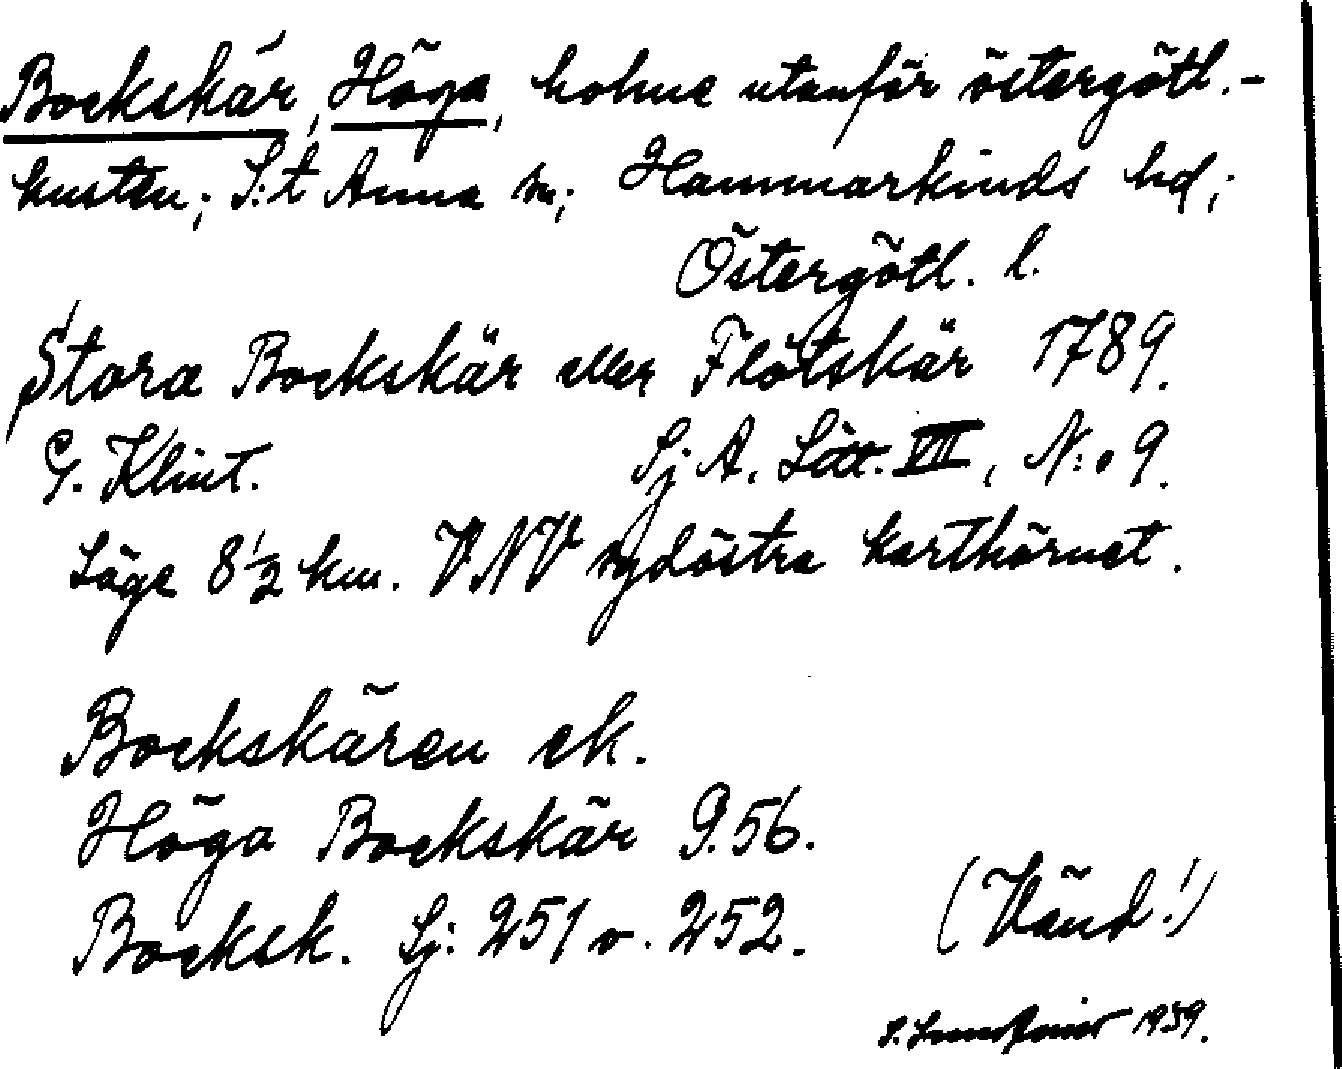 Bockskär, Höga, holme utanför östergötl.-
kusten; S:t Anna sn; Hammarkinds hd;
Östergötl. l.
Stora Bockskär eller Flötskär 1789.
G. Klint. Sj A. Litt. VII, N:o 9.
Läge 8 1/2 km. VNV sydöstra karthörnet.
Bockskären ek.
Höga Bockskär G. 56.
Bocksk. Sj: 251 o. 252. (Vänd!)
S. 1939.